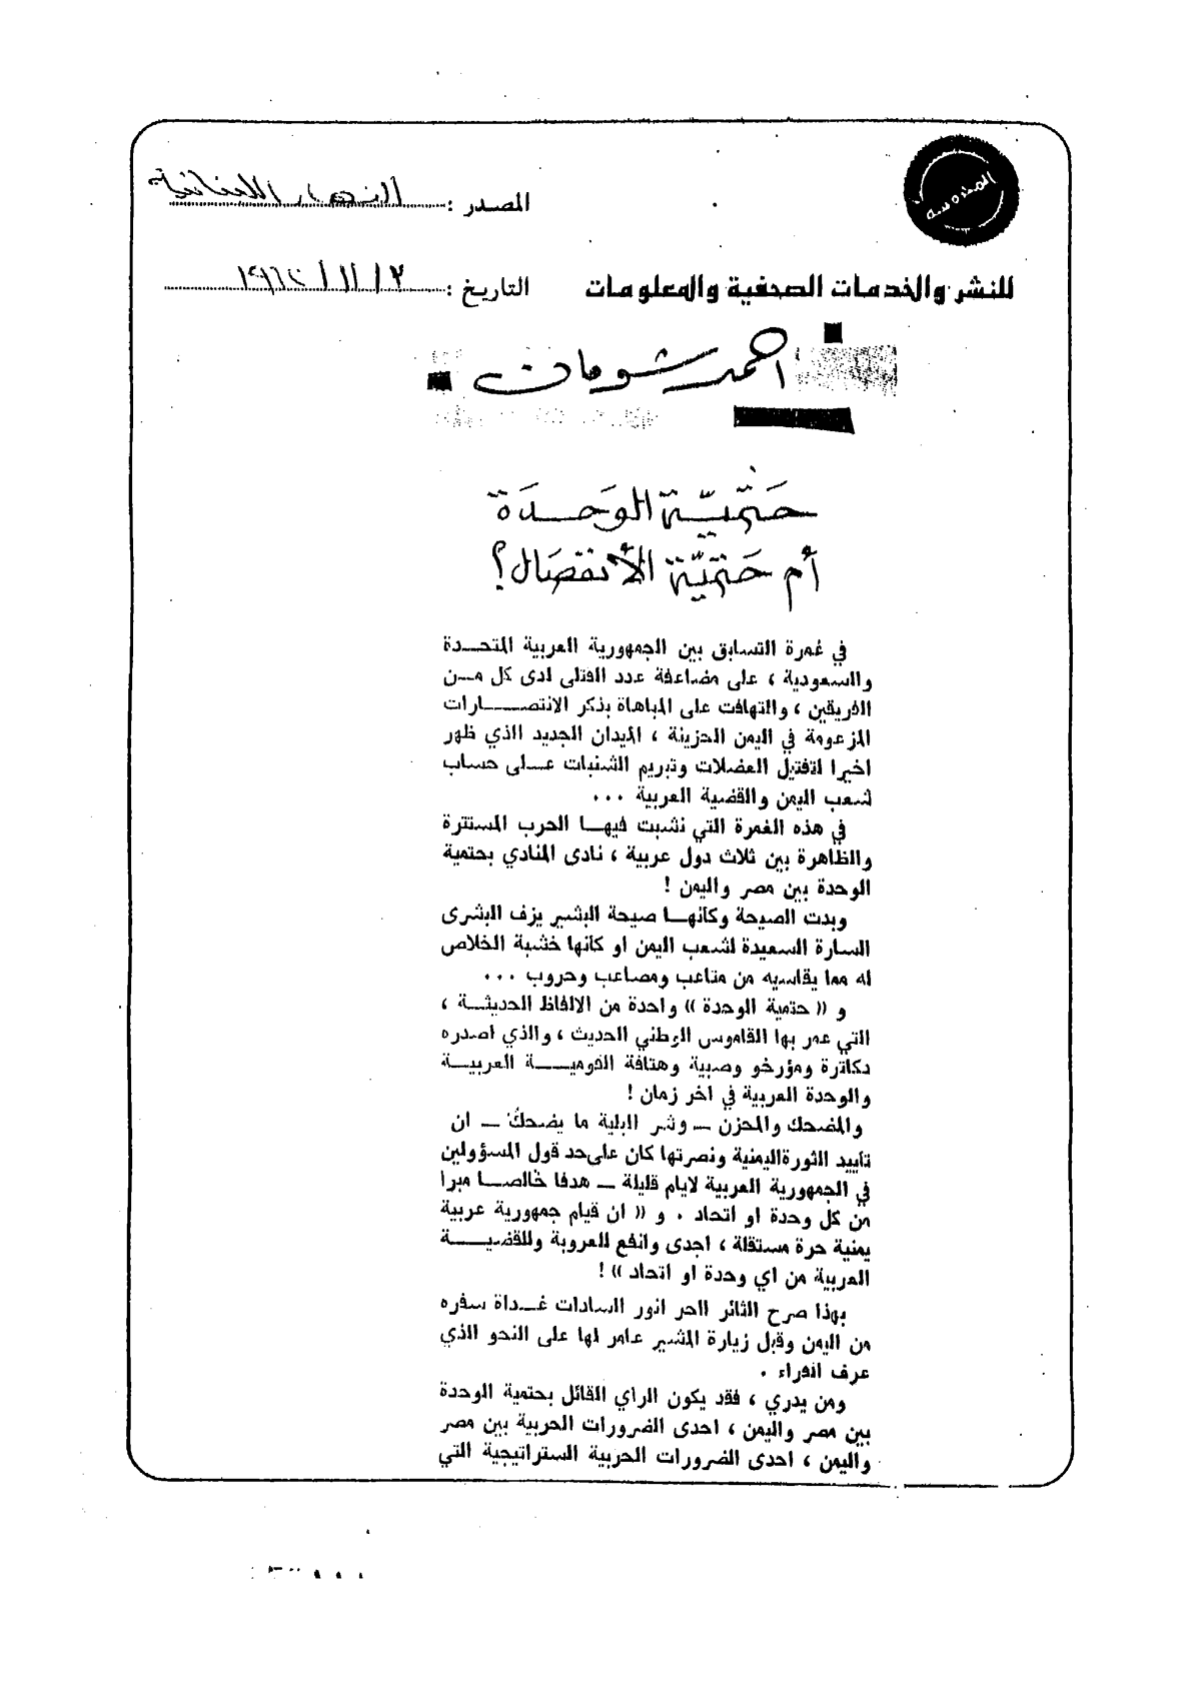 المحروسة
المصدر : النهار اللبنانية
للنشر والخدمات الصحفية والمعلومات
التاريخ : ٢ / ١١ / ١٩٦٢
احمد شومان
حَتْميَّة الوَحدَة
أم حَتميَّة الأنفصَال؟
في غمرة التسابق بين الجمهورية العربية المتحدة
والسعودية ، على مضاعفة عدد القتلى لدى كل من
الفريقين ، والتهافت على المباهاة بذكر الانتصارات
المزعومة في اليمن الحزينة ، الميدان الجديد الذي ظهر
اخيرا لتفتيل العضلات وتبريم الشنبات على حساب
شعب اليمن والقضية العربية ...
في هذه الغمرة التي نشبت فيها الحرب المستترة
والظاهرة بين ثلاث دول عربية ، نادى المنادي بحتمية
الوحدة بين مصر واليمن !
وبدت الصيحة وكأنها صيحة البشير يزف البشرى
السارة السعيدة لشعب اليمن او كانها خشبة الخلاص
له مما يقاسيه من متاعب ومصاعب وحروب ...
و « حتمية الوحدة » واحدة من الالفاظ الحديثة ،
التي عمر بها القاموس الوطني الحديث ، والذي اصدره
دكاترة ومؤرخو وصبية وهتافة القومية العربية
والوحدة العربية في اخر زمان !
والمضحك والمحزن – وشر البلية ما يضحك – ان
تأييد الثورة اليمنية ونصرتها كان على حد قول المسؤولين
في الجمهورية العربية لايام قليلة – هدفا خالصا مبرا
من كل وحدة او اتحاد . و « ان قيام جمهورية عربية
يمنية حرة مستقلة ، اجدى وانفع للعروبة وللقضية
العربية من اي وحدة او اتحاد » !
بهذا صرح الثائر الحر انور السادات غداة سفره
من اليمن وقبل زيارة المشير عامر لها على النحو الذي
عرف القراء .
ومن يدري ، فقد يكون الراي القائل بحتمية الوحدة
بين مصر واليمن ، احدى الضرورات الحربية بين مصر
واليمن ، احدى الضرورات الحربية الستراتيجية التي